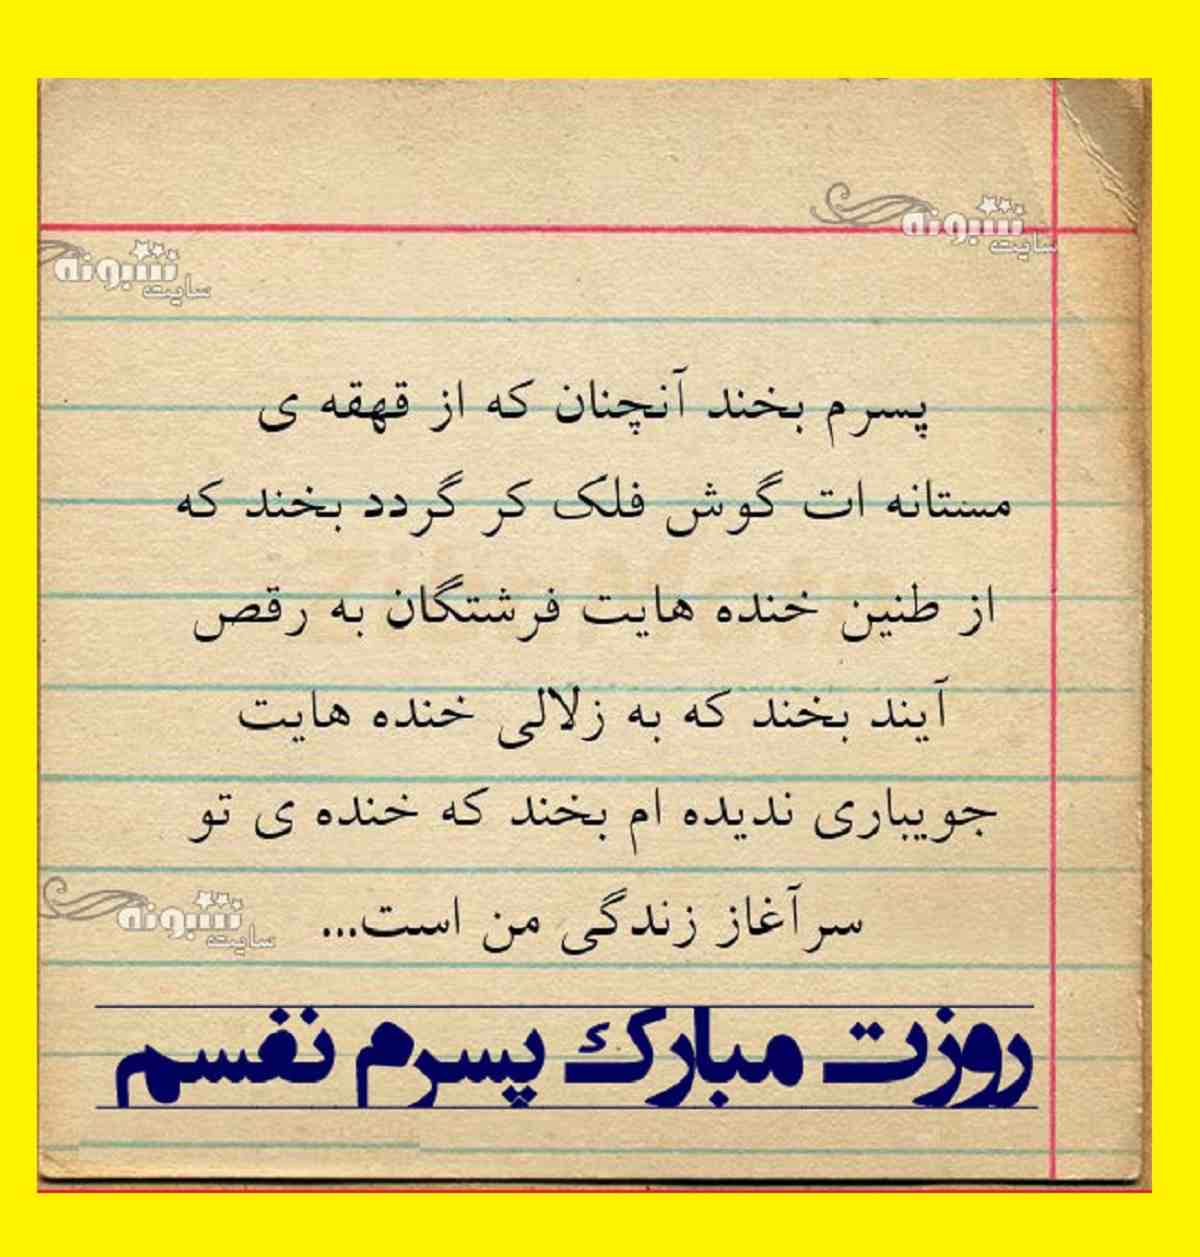 سایت نتبونه
سایت نتبونه
پسرم بخند آنچنان که از قهقه ی
مستانه ات گوش فلک کر گردد بخند که
از طنین خنده هایت فرشتگان به رقص
آیند بخند که به زلالی خنده هایت
جویباری ندیده ام بخند که خنده ی تو
سرآغاز زندگی من است...
سایت نتبونه
روزت مبارک پسرم نفسم